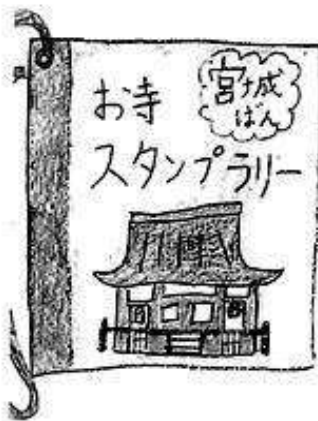 お寺
宮城
ばん
スタンプラリー